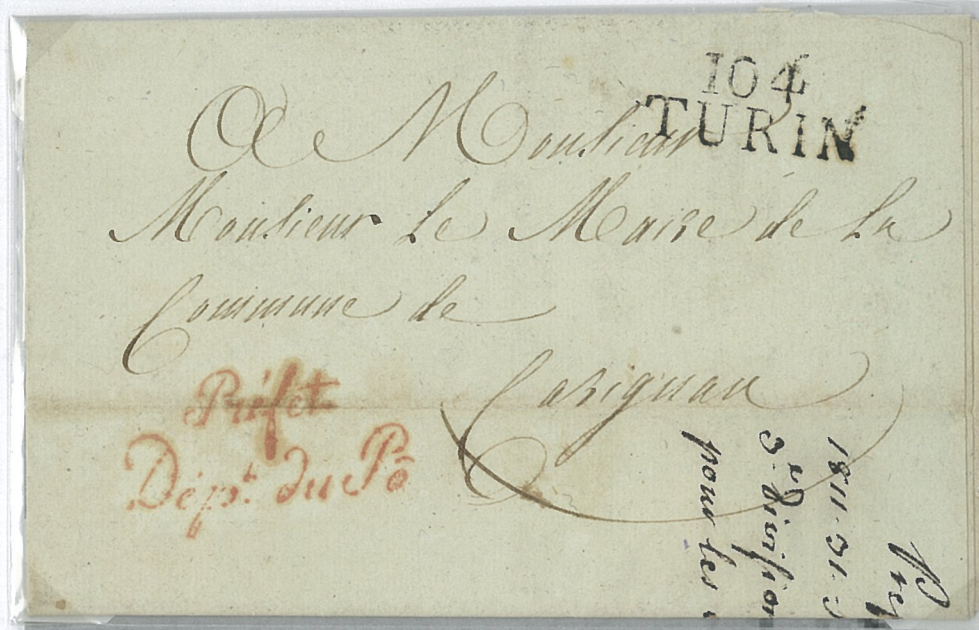 104
TURIN
A Monsieur
Monsieur Le Maire de La
Commune de
Carignan
Préfet
Dépt. du Pô
1811-31-
3e Division
pour les